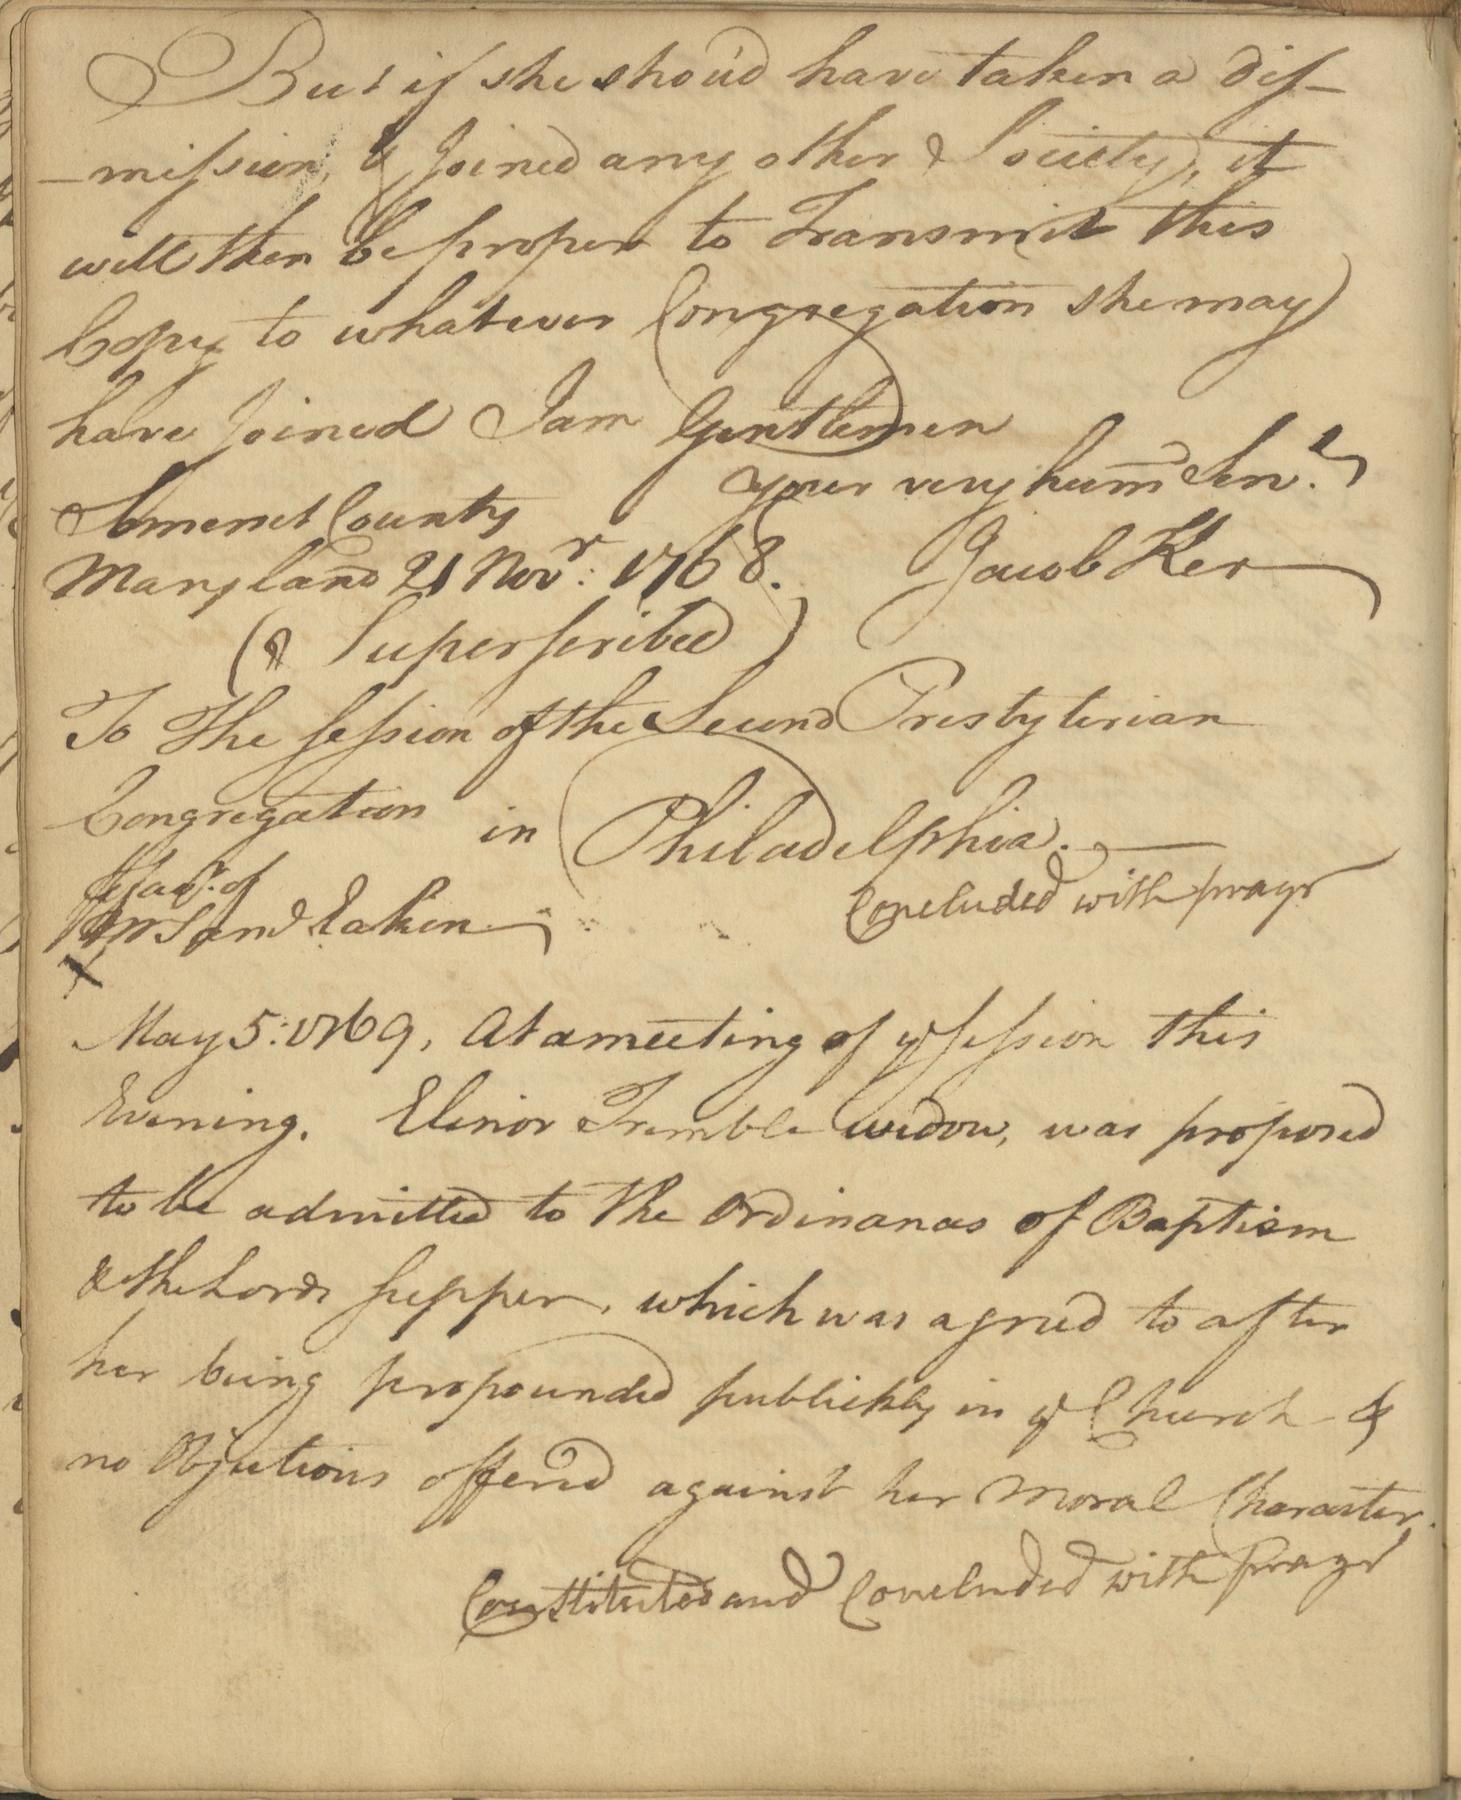 But if she shou'd have taken a dis-
-mission, & Joined any other Society, it
will then be proper to Transmit this
Copy to whatever Congregation she may
have Joined I am Gentlemen
your very hum Serv.t
Somerset County
Maryland 21 Novr: 1768. Jacob Ker
(& Superscribed)
To The session of the Second Presbyterian
Congregation in Philadelphia.
favr. of
Mr Saml Eakin
Concluded with prayr
X
May 5: 1769, At a meeting of ye session this
Evening. Elinor Tremble widow, was proposed
to be admitted to the Ordinances of Baptism
& the Lords supper, which was agreed to after
her being propounded publickly in ye Church &
no Objections offered against her Moral Character.
Constituted and Concluded with prayr